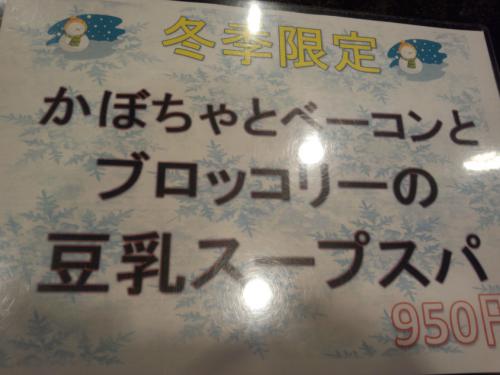 冬季限定
かぼちゃとベーコンと
ブロッコリーの
豆乳スープスパ
950円